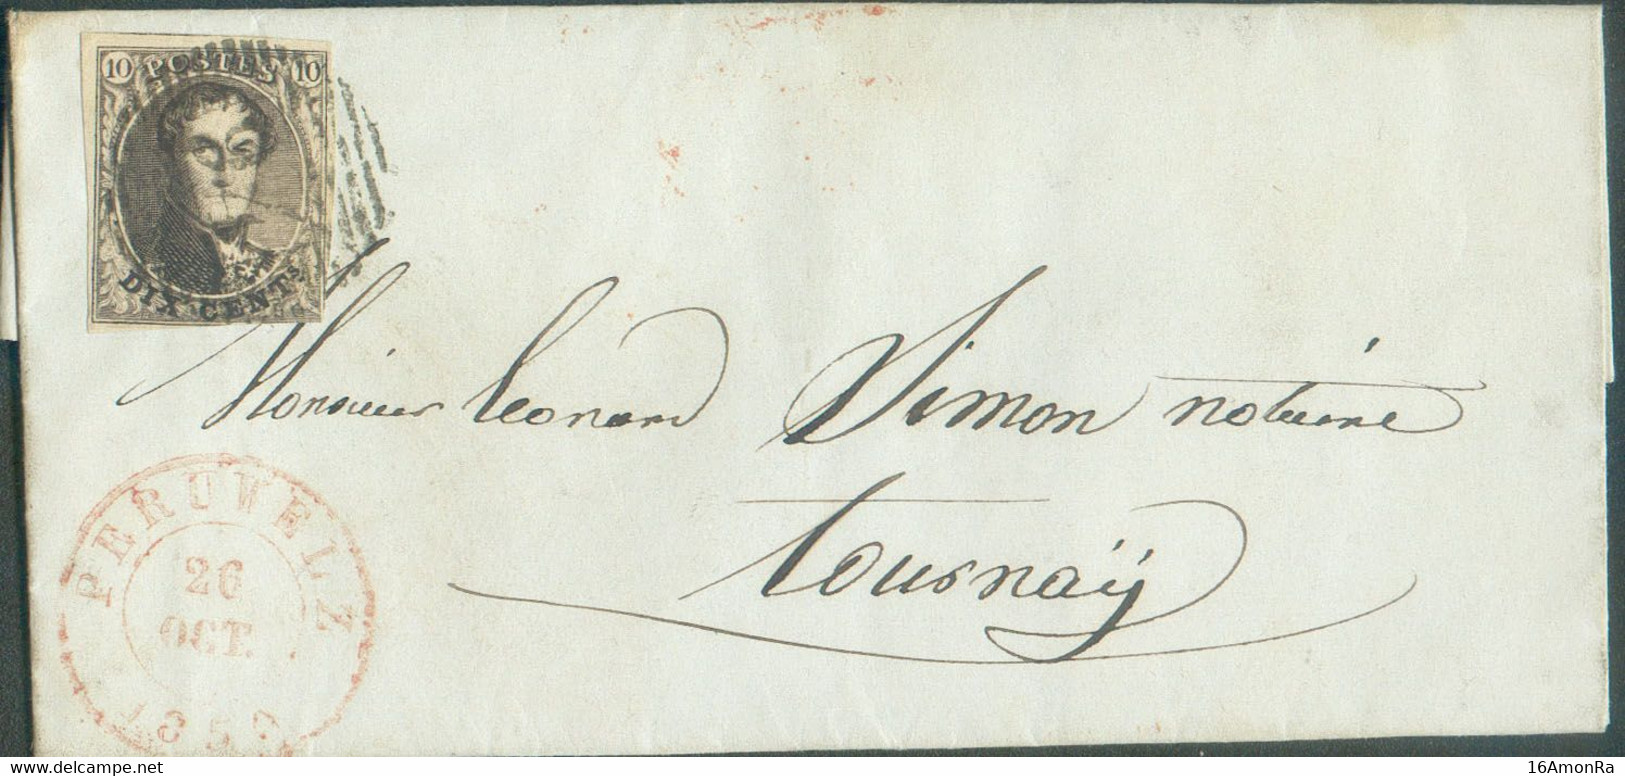 10 POSTES 10
DIX CENTS
Monsieur Leonard Simon notaire
Tournaÿ
PERUWELZ
26
OCT.
delcampe.net
16AmonRa